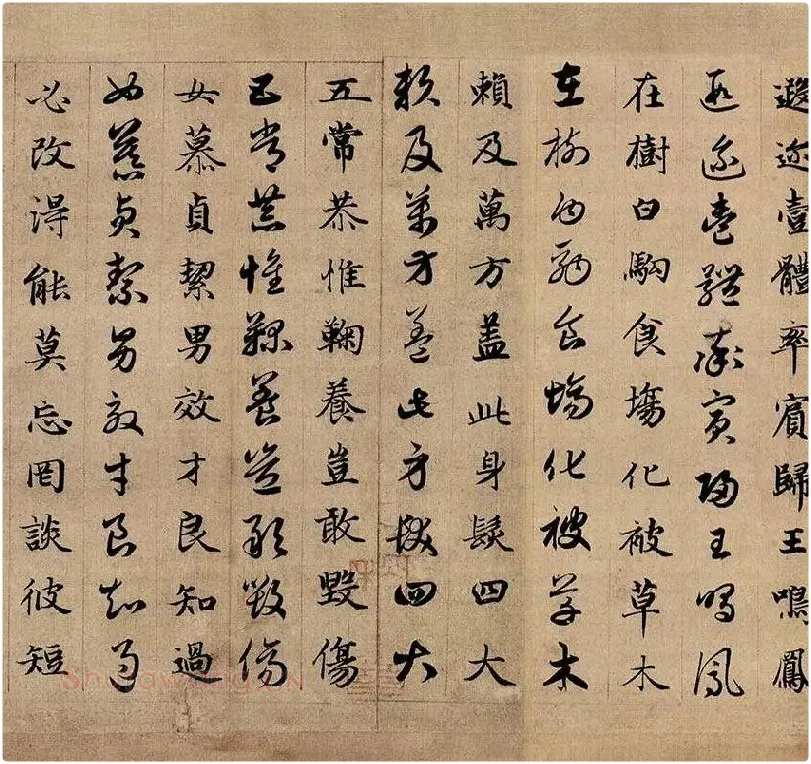 遐迩壹體率賓歸王鳴鳳
遐迩壹體率賓歸王鳴鳳
在樹白駒食塲化被草木
在樹白駒食塲化被草木
賴及萬方盖此身髮四大
賴及萬方盖此身髮四大
五常恭惟鞠養豈敢毁傷
五常恭惟鞠養豈敢毁傷
女慕貞絜男效才良知過
女慕貞絜男效才良知過
必改得能莫忘罔談彼短
Shufawang.CN